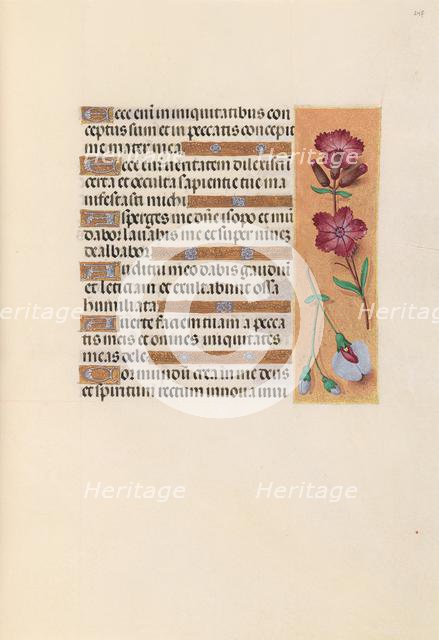 247
Ecce eni in iniquitatibus con
ceptus sum et in peccatis concepit
me mater mea
Ecce eni veritatem dilexisti in
certa et occulta sapientie tue ma
nifestasti michi
Asperges me dñe ysopo et mū
dabor lavabis me et super nivez
dealbabor
Auditui meo dabis gaudiū
et leticiam et exultabunt ossa
humiliata
Averte faciem tuam a pecca
tis meis et omnes iniquitates
meas dele
Cor mundum crea in me deus
et spiritum rectum innova in vi
Heritage
Heritage
Heritage
Heritage
Heritage
Heritage
Heritage